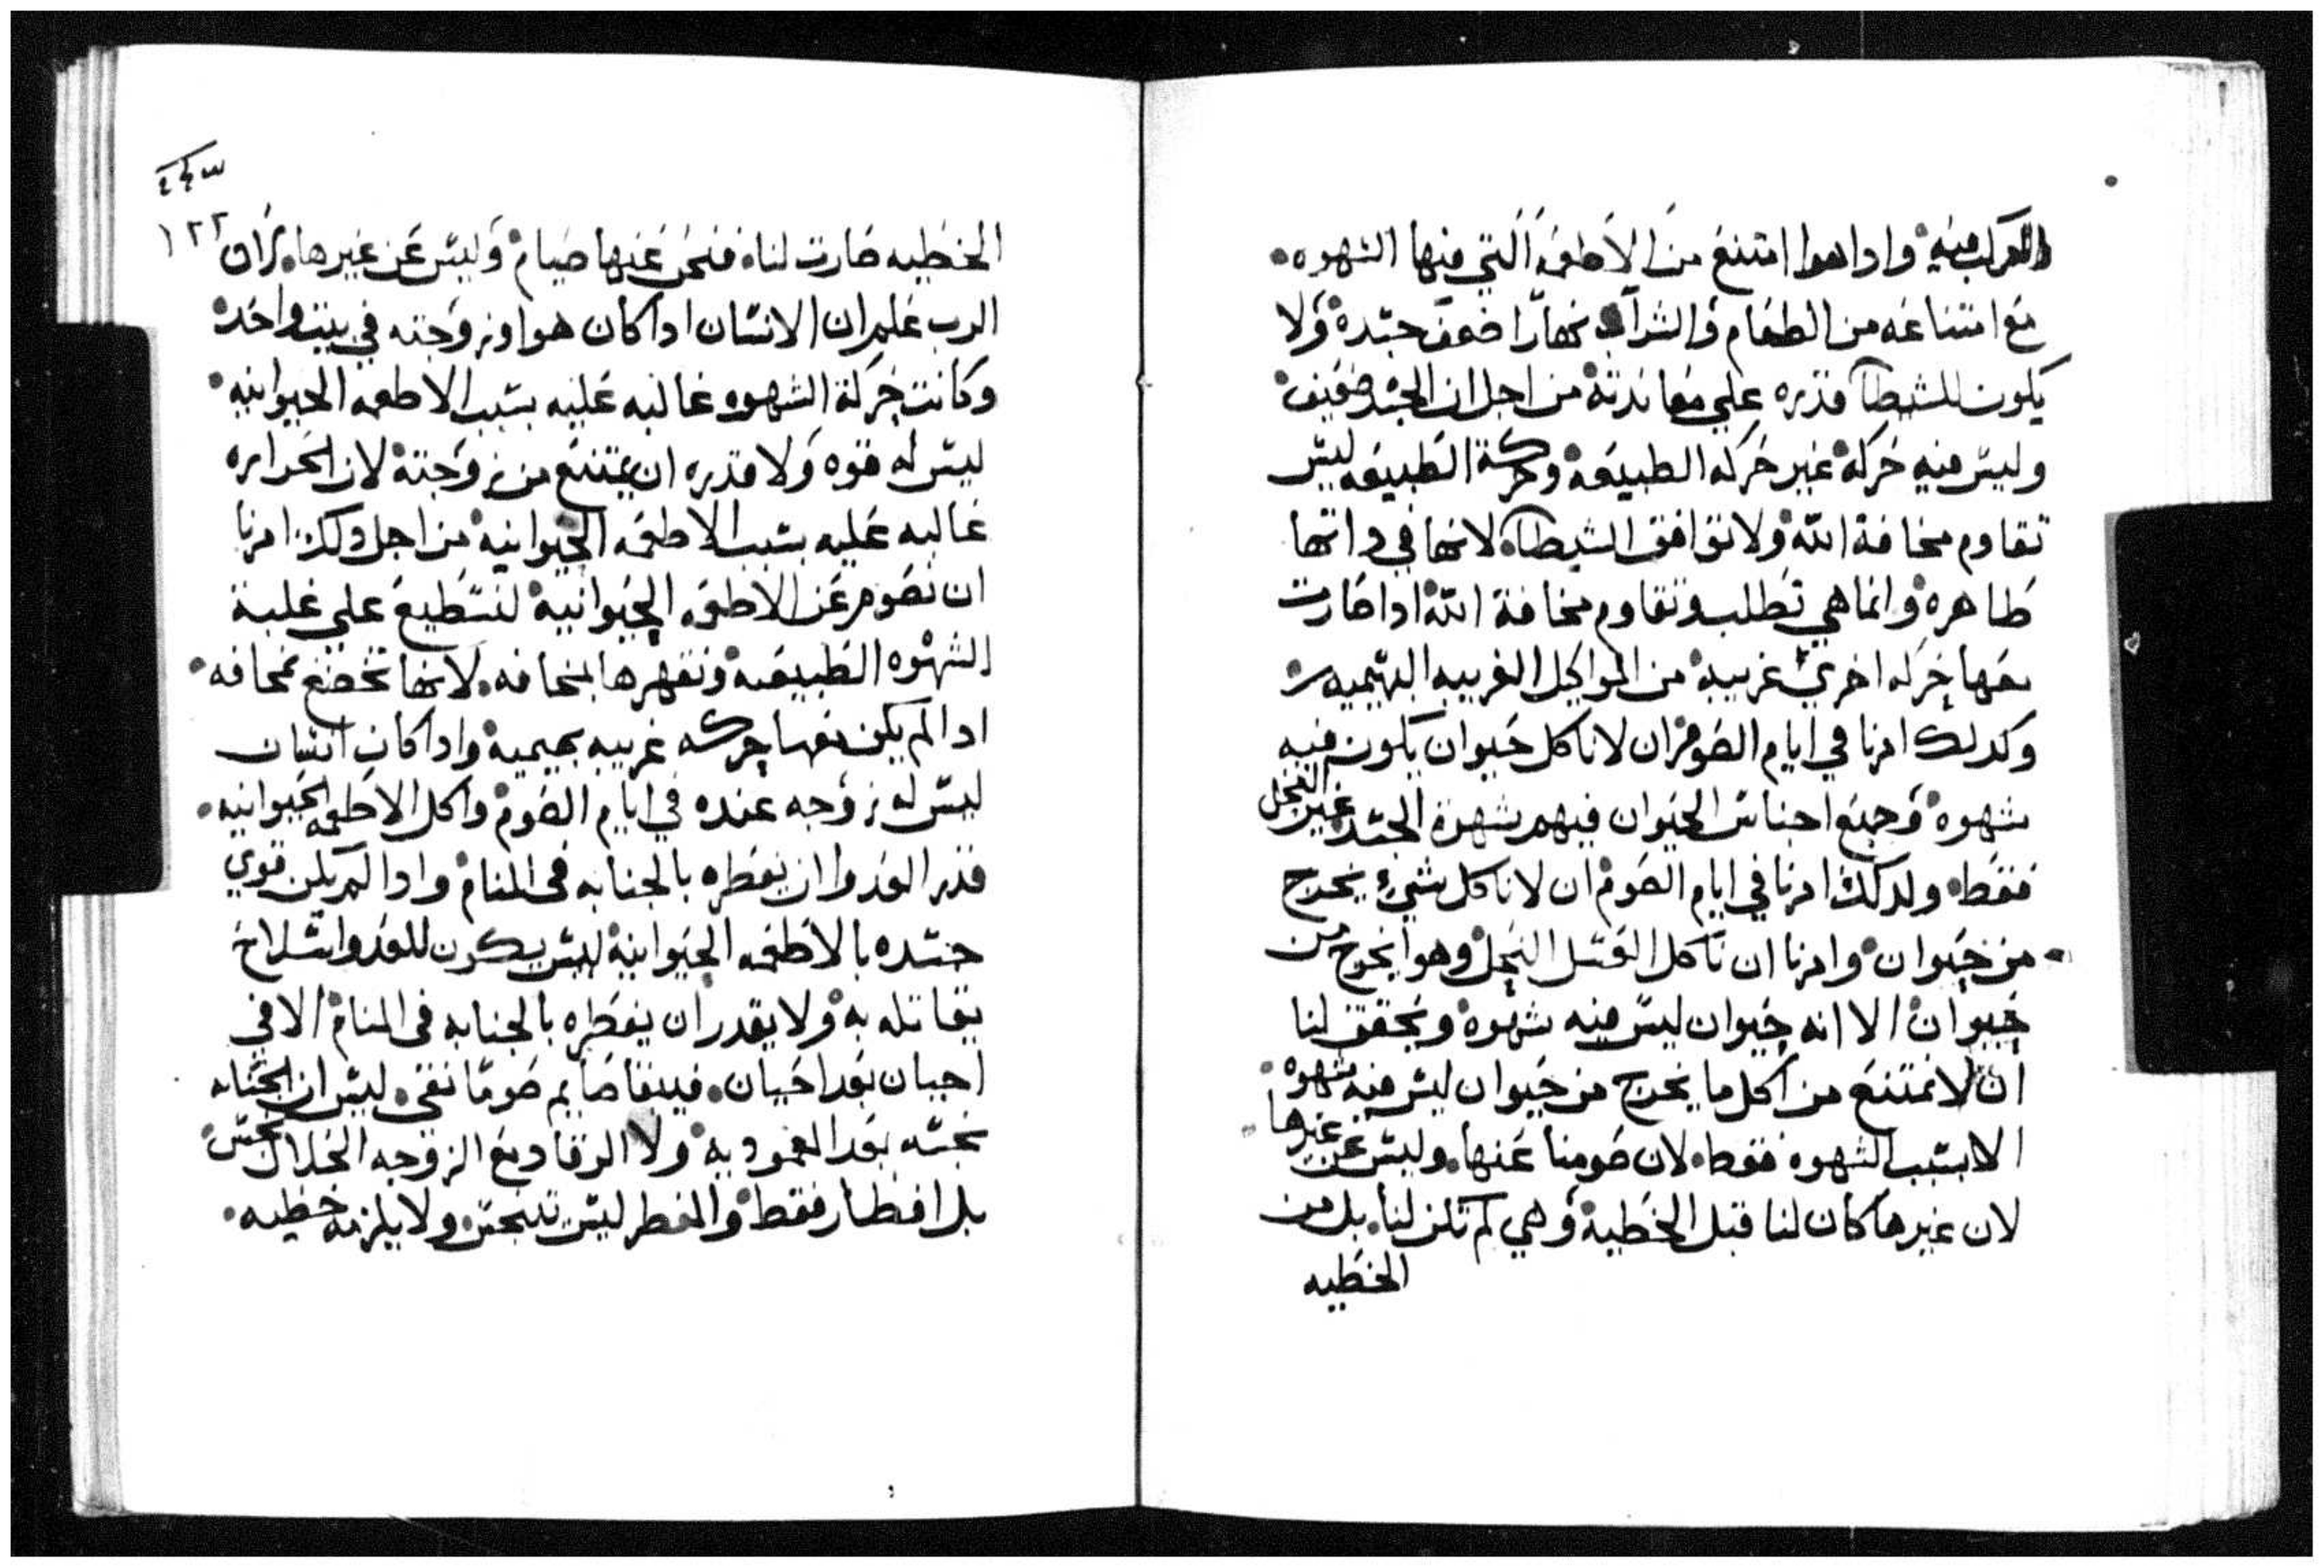 وادا هوا امتنع من الاطعمه التي فيها الشهوه
مع امتناعه من الطعام والشراب نهارًا ضعف جسده ولا
يكون للشيطان قدره علي معاندته من اجل ان الجسد ضعيف
وليس فيه حركه غير حركه الطبيعه وحركة الطبيعه ليس
تقاوم مخافة الله ولا توافق الشيطان لانها في داتها
طاهره وانما هي تطلب وتقاوم مخافة الله ادا صارت
معها حركه اخري غريبه من المواكيل الغريبه البهيميه
وكدلك امرنا في ايام الصوم ان لا ناكل حيوان يكون فيه
شهوه وجميع اجناس الحيوان فيهم شهوة الجسد غير النحل
فقط ولدلك امرنا في ايام الصوم ان لا ناكل شيء يخرج
من حيوان وامرنا ان ناكل العسل النحل وهوا يخرج من
حيوان الا انه حيوان ليس فيه شهوه ويحقق لنا
ان لا نمتنع من اكل ما يخرج من حيوان ليس فيه شهوه
الا بسبب الشهوه فقط لان صومنا عنها وليس عن غيرها
لان غيرها كان لنا قبل الخطية وهي لم تكن لنا بل من
الخطيه
١٢٢
الخطيه صارت لنا فنحن عنها صيام وليس عن غيرها لان
الرب علم ان الانسان ادا كان هوا وزوجته في بيت واحد
وكانت حركة الشهوه غالبه عليه بسبب الاطعمه الحيوانيه
ليس له قوه ولا قدره ان يمتنع من زوجته لان الحراره
غالبه عليه بسبب الاطعمه الحيوانيه من اجل دلك امرنا
ان نصوم عن الاطعمه الحيوانية لنستطيع علي غلبة
الشهوه الطبيعيه ونقهرها بمخافه لانها تخضع بمخافه
ادا لم يكن معها حركه غريبه بهيمية وادا كان انسان
ليس له زوجه عنده في ايام الصوم واكل الاطعمه الحيوانيه
قدر العدوا ان يفطره بالجنابه في المنام وادا لم يكن قوي
جسده بالاطعمه الحيوانية ليس يكون للعدوا سلاح
يقاتله به ولا يقدر ان يفطره بالجنابه في المنام الا في
احيان بعد احيان فيبقا صايم صومًا نقي ليس ان الجنابه
نجسه بعد المعموديه ولا الرقاد مع الزوجه الحلال نجس
بل افطار فقط والفطر ليس تنجس ولا يلزمه خطيه